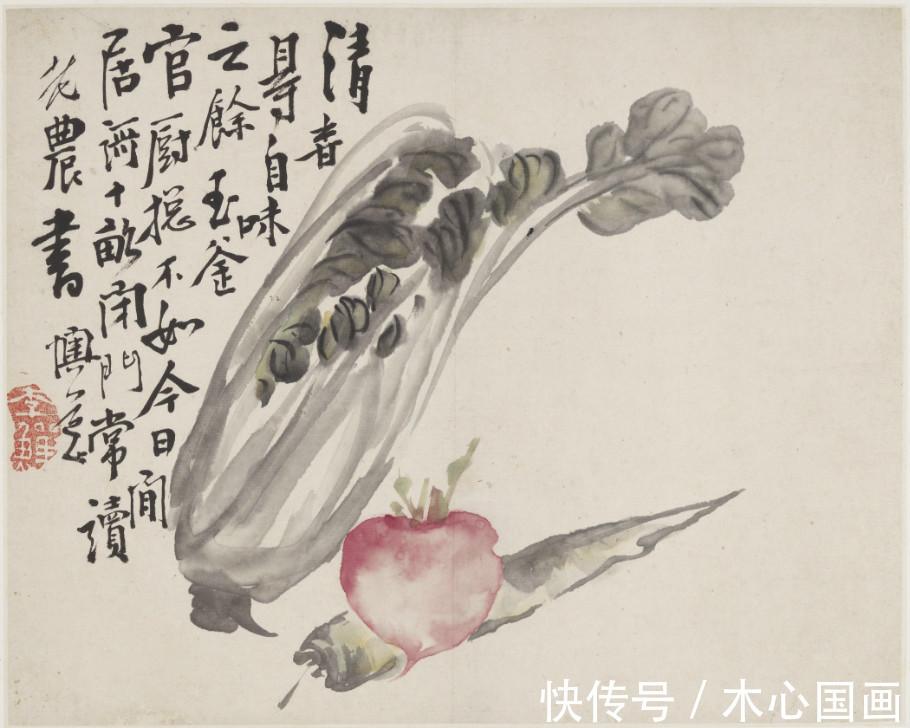 清香
尋自味
之餘玉釜
官厨總不如今日閒
居十畝閉門常讀
花農書
快传号 / 木心国画